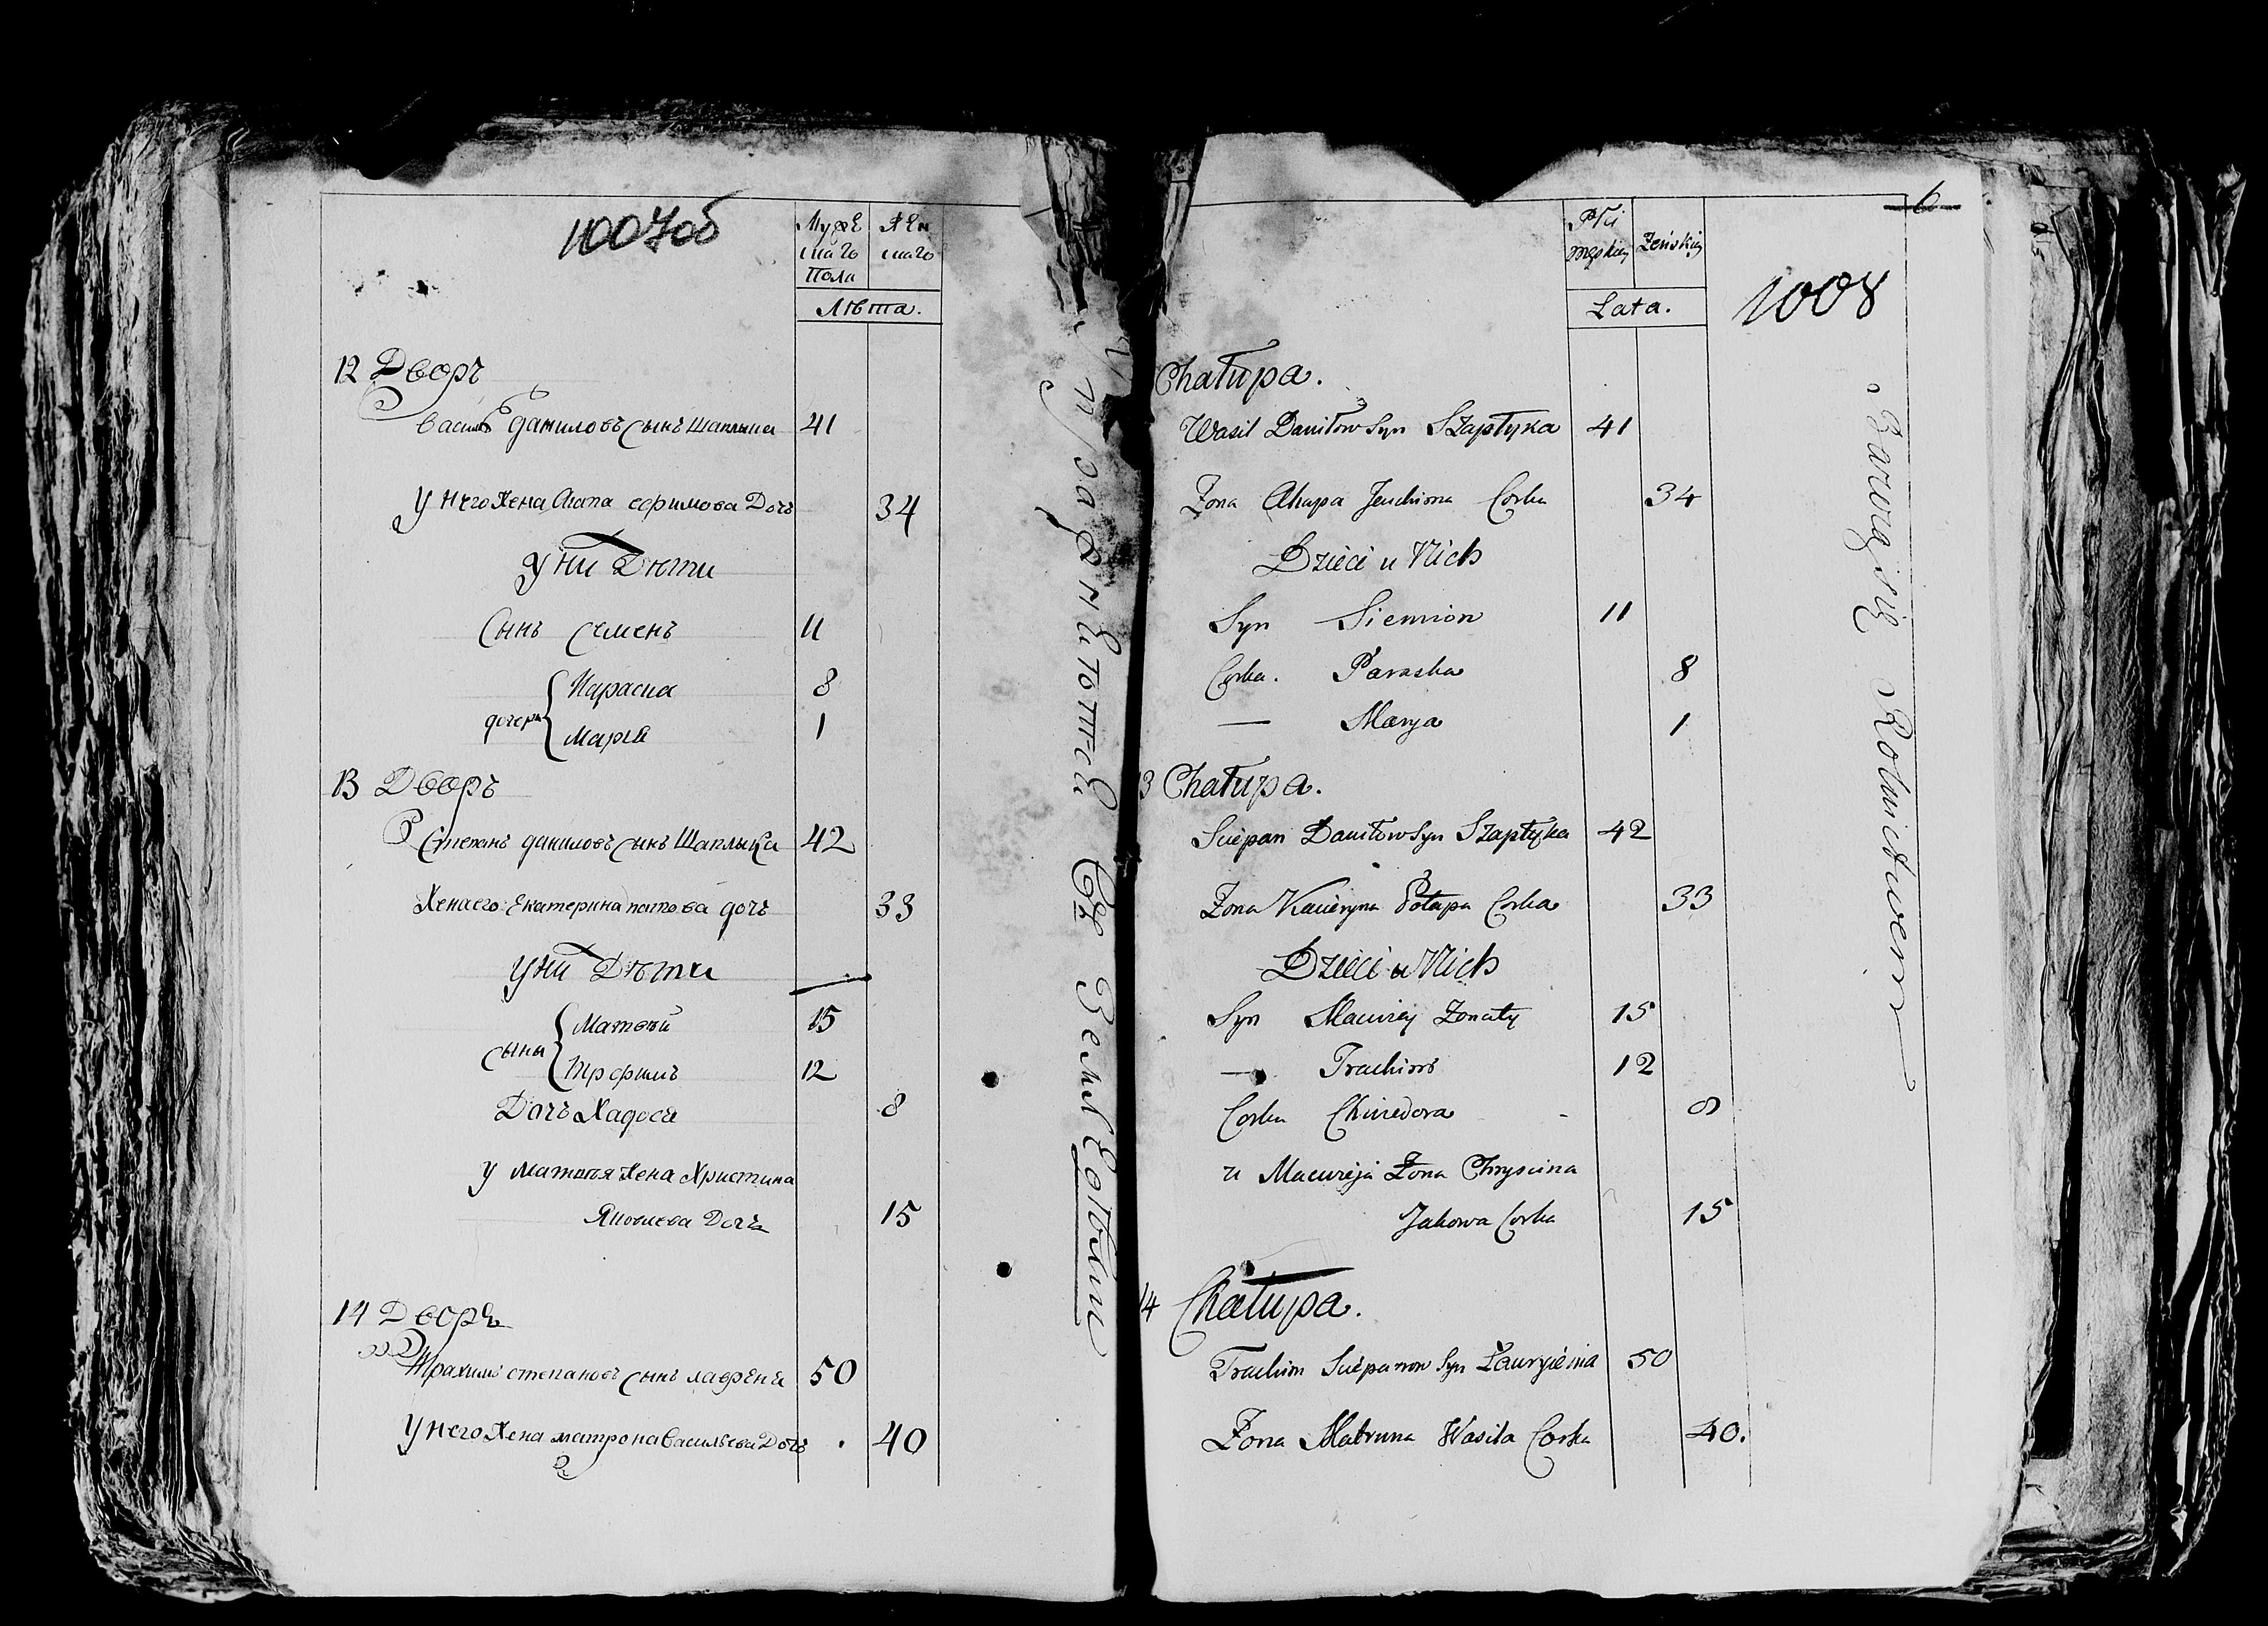 1007об
Муже
скаго
Пола
Жен
скаго
Лѣта.
12 Дворъ
Василь Даниловъ сынъ Шаплыка 41
у него жена Агапа Ефимова Дочь 34
у ни Дѣти
Сынъ Семенъ 11
дочери
Параска 8
Марья 1
13 Дворъ
Степанъ Даниловъ сынъ Шаплыка 42
Жена его Екатерина дочь 33
у ни Дѣти
сыны
Матвѣй 15
Трофимъ 12
Дочь Хадося 8
у Матвѣя жена Христина
Яковлева Дочь 15
14 Дворъ
Трахимъ Степановъ сынъ 50
у него жена Матрона Васильева Дочь 40
Земледѣлiем
6
1008
Płci
męskiey
Żeńskiey
Lata.
Chałupa.
Wasil Daniłow Syn Szapłyka 41
Żona Ahapa Jeuchima Corka 34
Dzieci u Nich
Syn Siemion 11
Corka. Paraska 8
— Marya 1
13 Chałupa.
Sciepan Daniłow Syn Szapłyka 42
Żona Kacieryna Potapa Corka 33
Dzieci u Nich
Syn Maciwiey Żonaty 15
— Trachim 12
Corka Chwiedora 8
u Maciwieja Żona Chryscina
Jakowa Corka 15
14 Chałupa.
Trachim Sciepanow Syn 50
Żona Matruna Wasila Corka 40.
Bawią się Rolnictwem